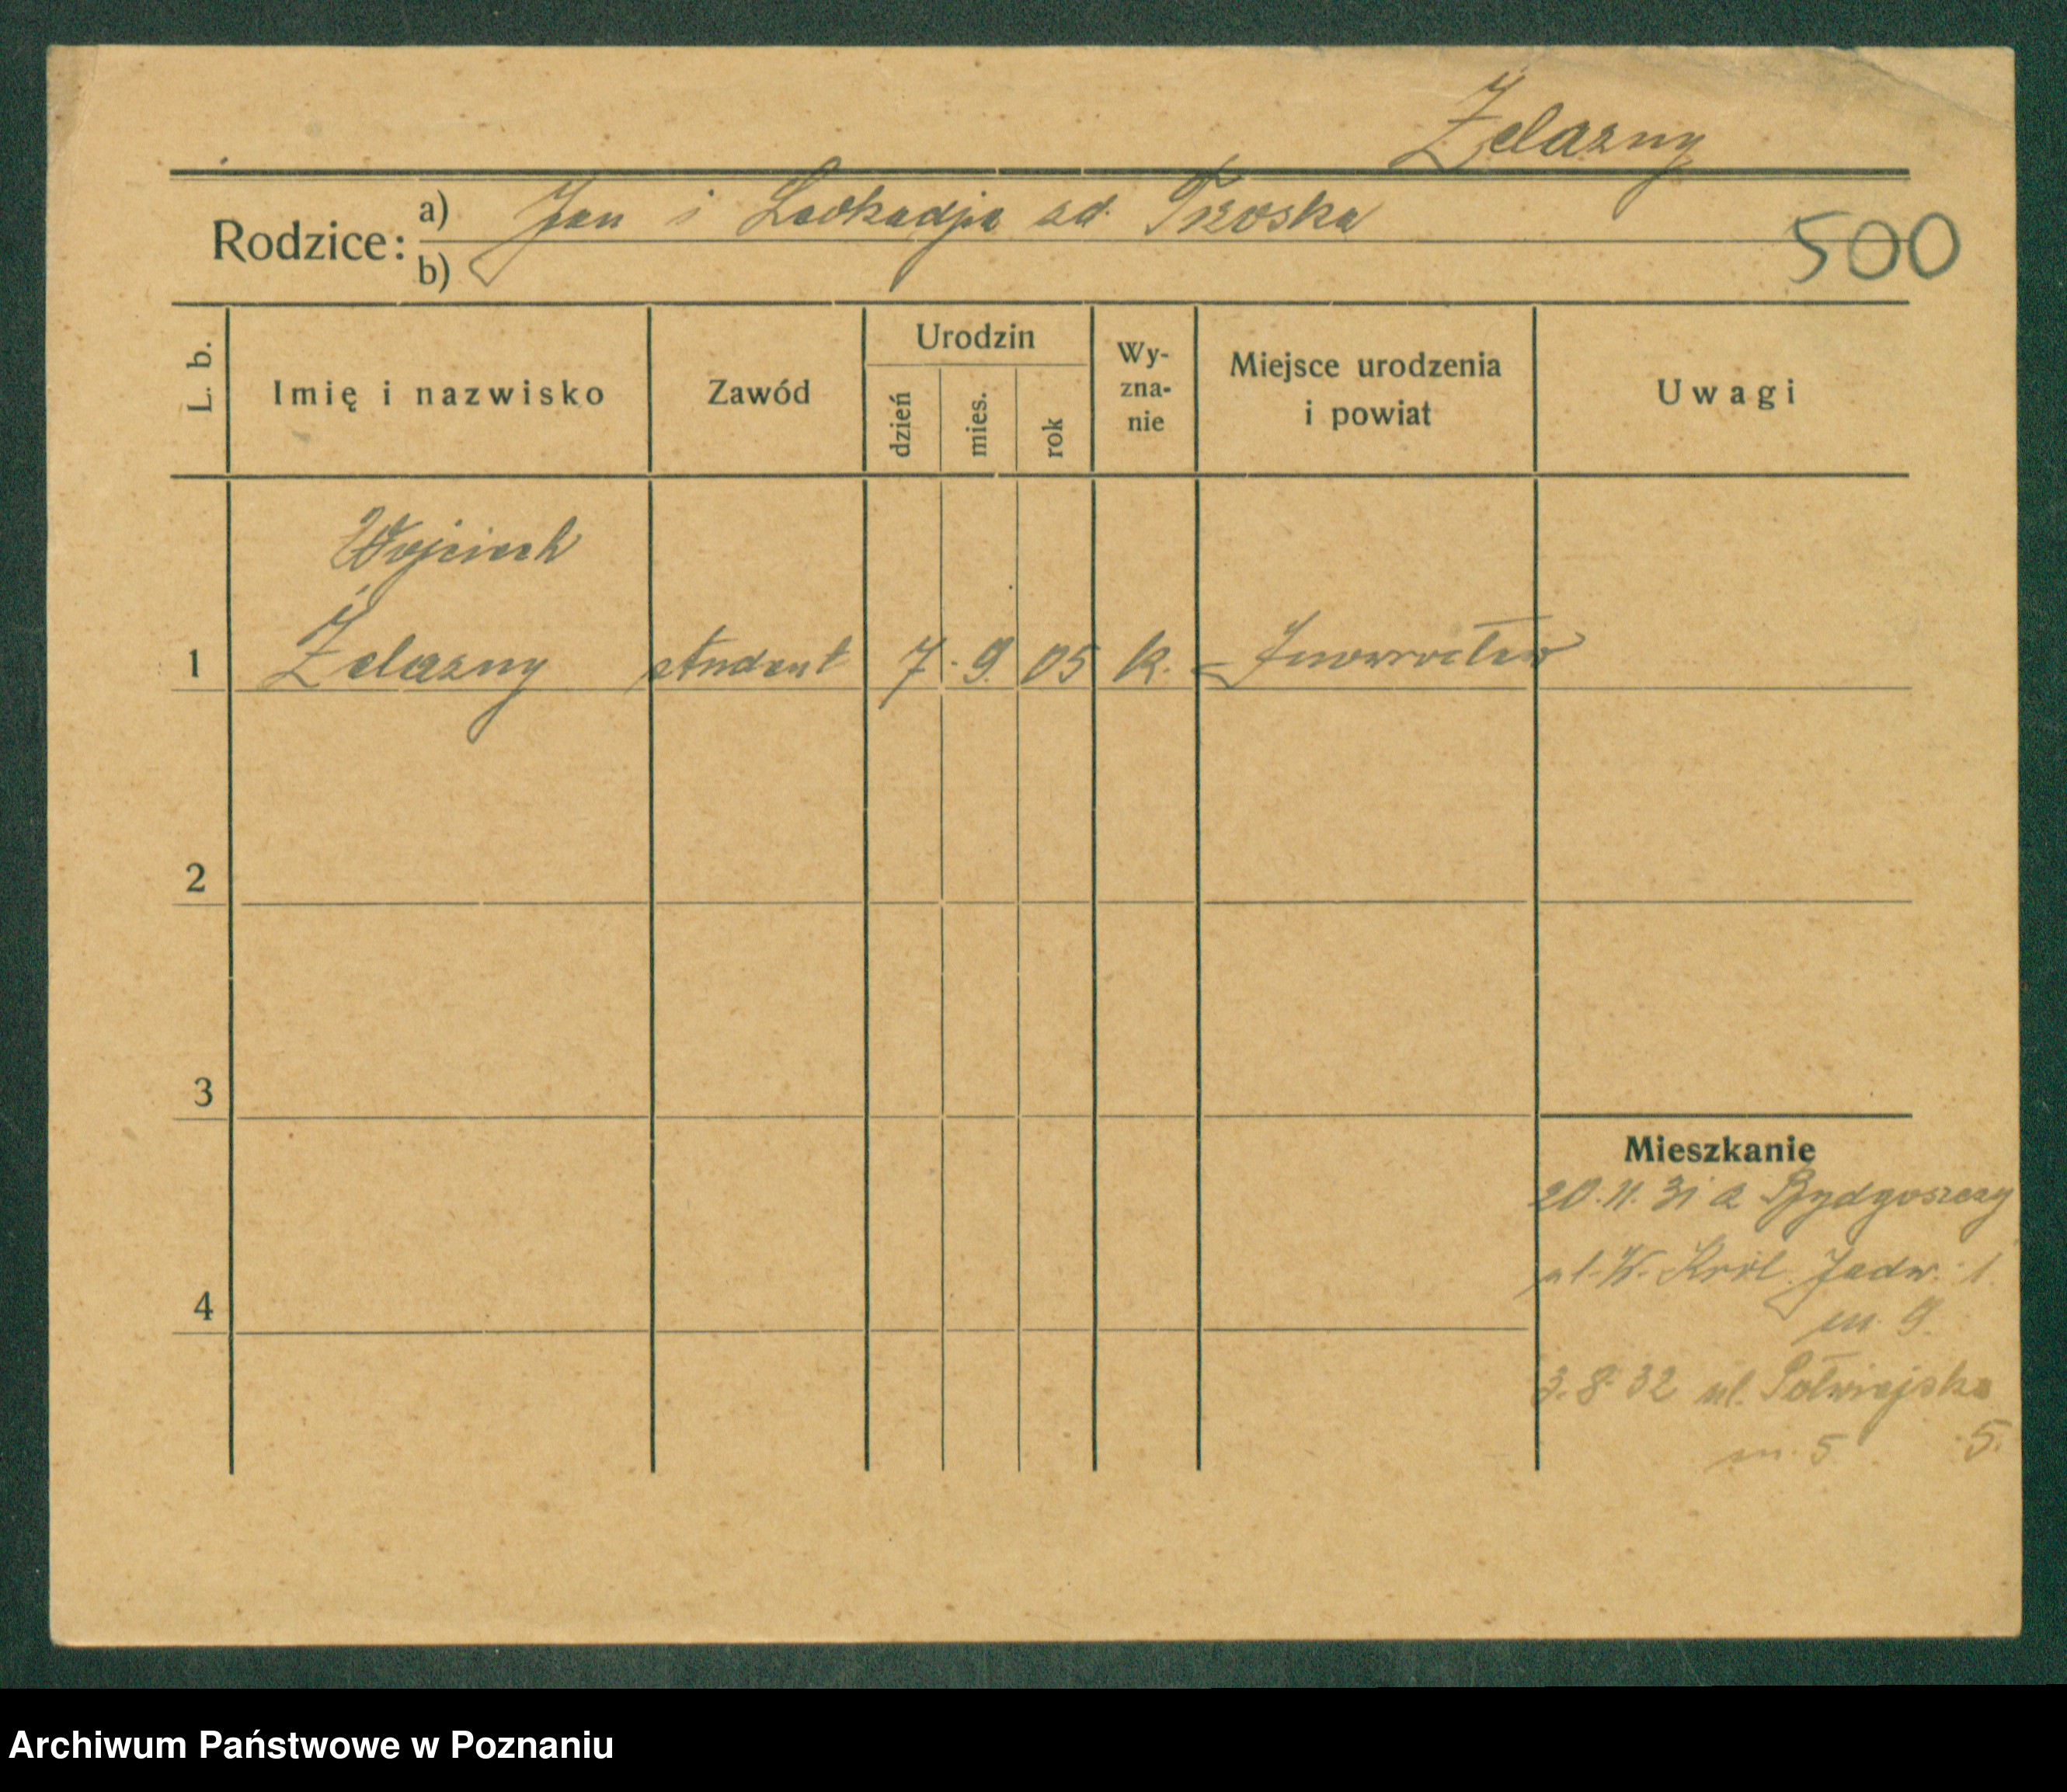 Żelazny
Rodzice: a) Jan i Leokadja zd. Troska
b)
500
L. b.
Imię i nazwisko
Zawód
Urodzin
dzień
mies.
rok
Wy-
zna-
nie
Miejsce urodzenia
i powiat
Uwagi
Wojciech
1 Żelazny student 7. 9. 05 k. Inowrocław
2
3
4
Mieszkanie
20.11.31 z Bydgoszczy
ul. W. Król. Jadw. 1.
m 9.
3.8.32 ul. Półwiejska
m. 5 5.
Archiwum Państwowe w Poznaniu